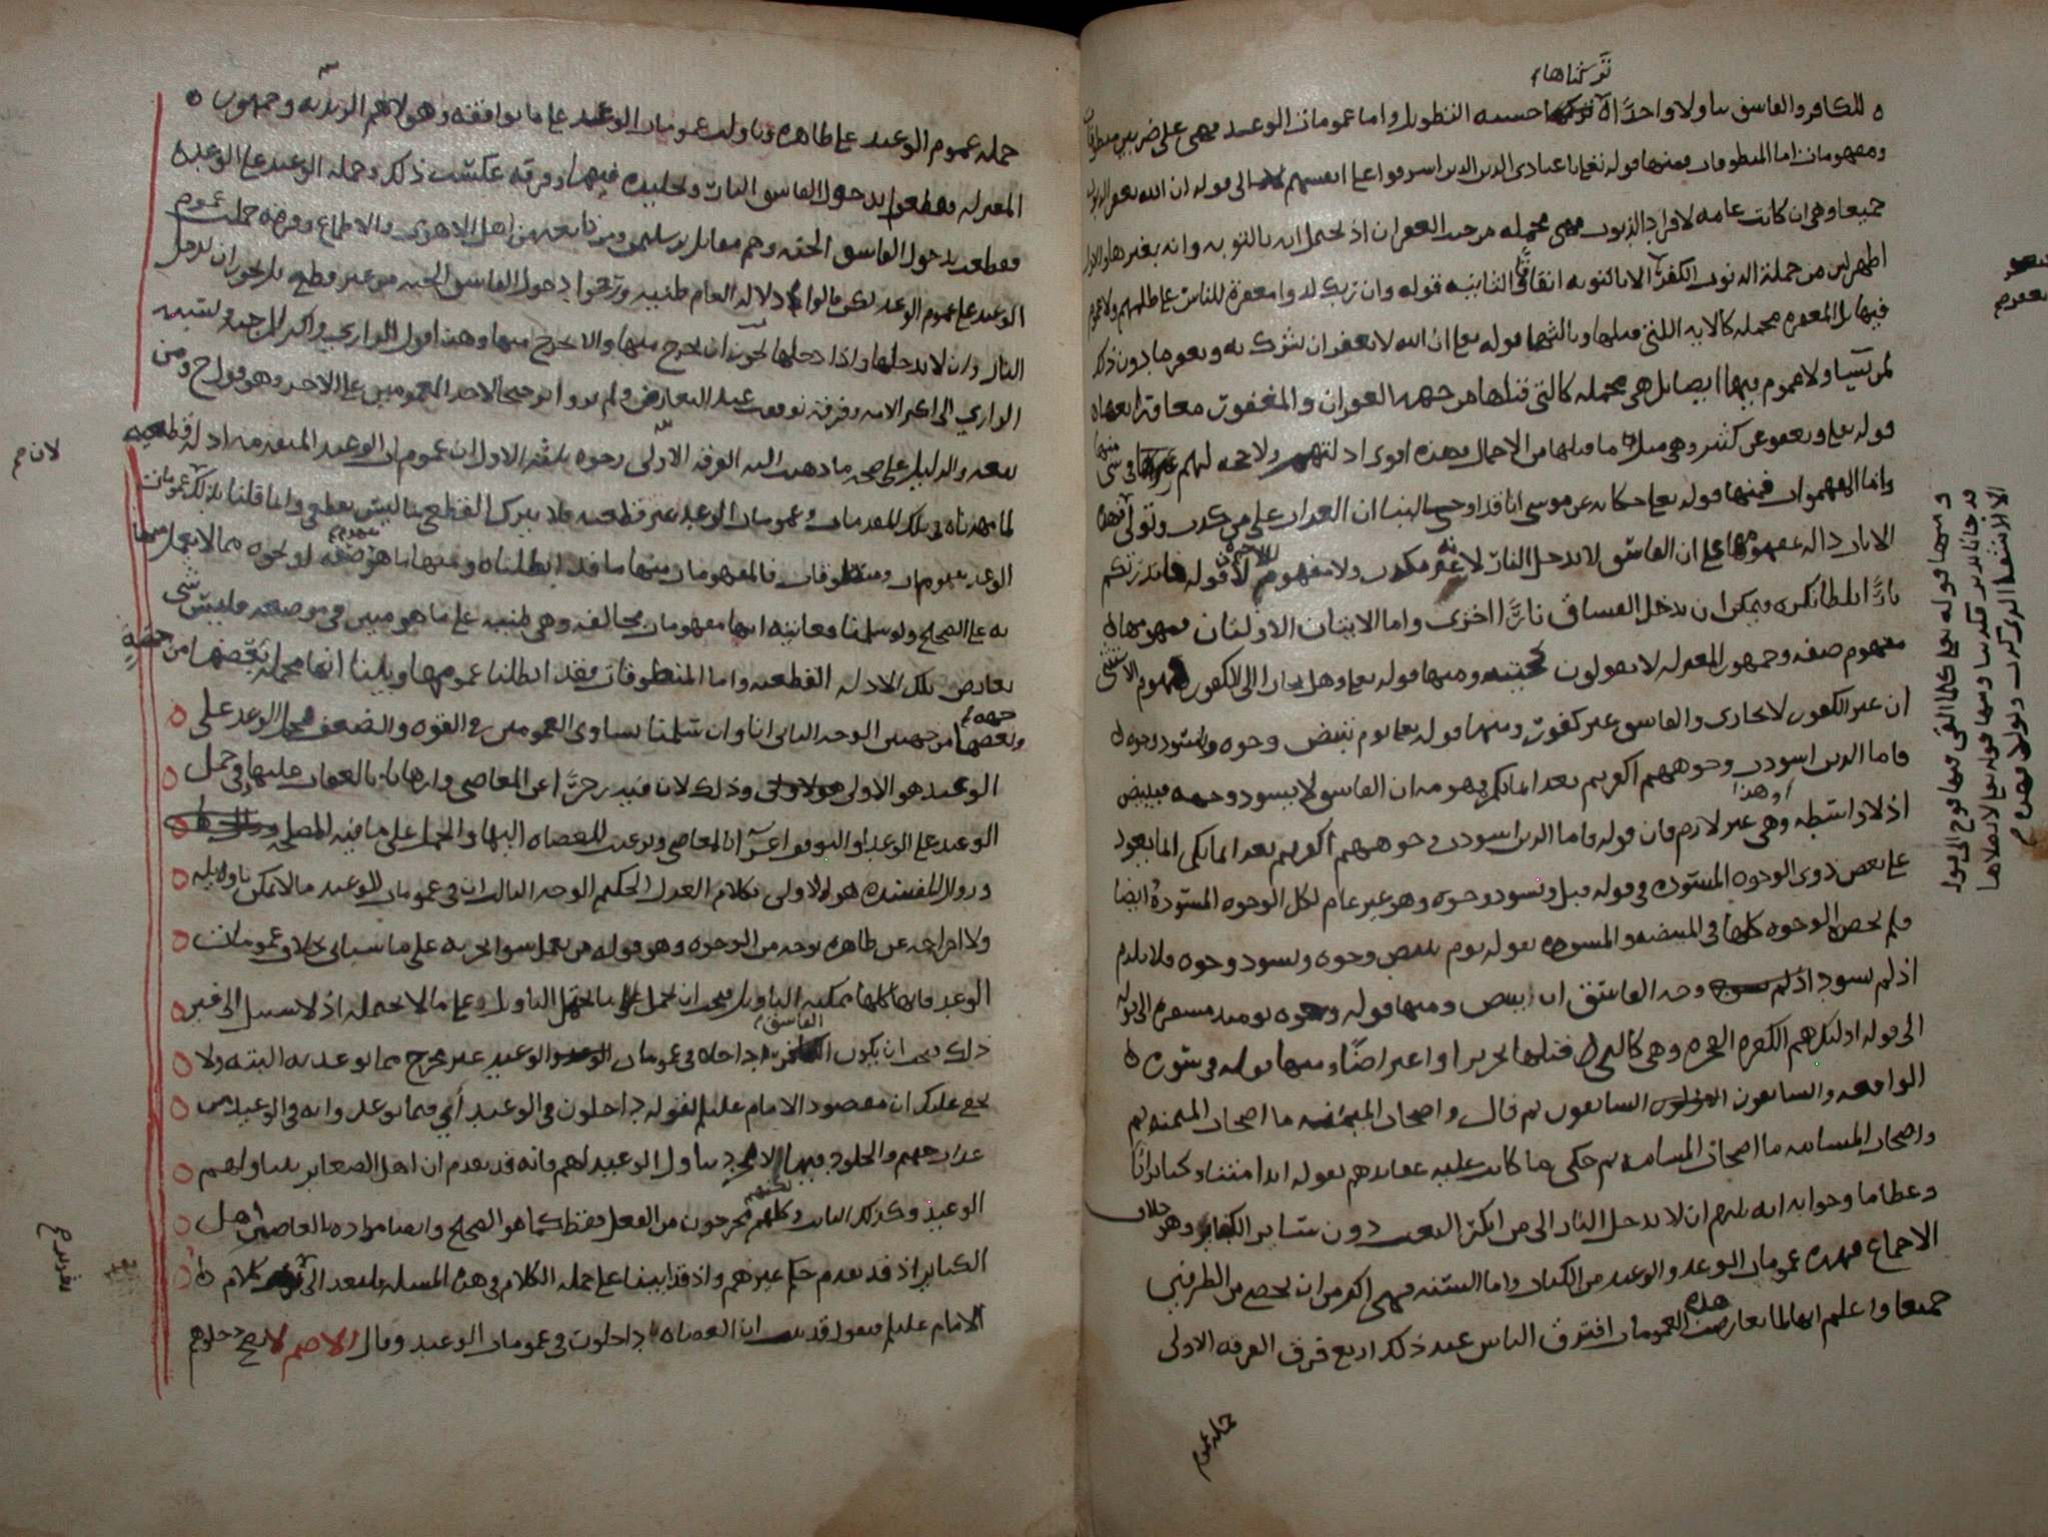 تركناها
للكافر والفاسق تناولا واحدا الا خشية التطويل واما عمومات الوعد فهي على ضربين منطوقات
ومفهومات اما المنطوقات فمنها قوله تعالى يا عبادي الذين اسرفوا على انفسهم الى قوله ان الله يغفر الذنوب
جميعا وهي ان كانت عامه لافراد الذنوب فهي مجمله من جهة الغفران اذ يحتمل انه بالتوبه وانه بغيرها والاول
اظهر لان من جملة الذنوب الكفر الا بالتوبه اتفاقا الثانيه قوله وان ربك لذوا مغفرة للناس على ظلمهم ولا عموم
فيها بل المغفره مجمله كالايه اللتي قبلها وثالثها قوله تعالى ان الله لا يغفر ان يشرك به ويغفر ما دون ذلك
لمن يشا ولا عموم فيها ايضا بل هي مجمله كالتي قبلها من جهة الغفران والمغفور
قوله تعالى ويعفو عن كثير وهي مثل ما قبلها من الاجمال وهذه اقوى ادلتهم ولا حجه لهم في شي منها
واما المفهومات فمنها قوله تعالى حكايه عن موسى انا قد اوحي الينا ان العذاب على من كذب وتولى فهذه
الايات داله بمفهومها على ان الفاسق لا يدخل النار لانه غير مكذب ولا مفهوم لقوله فانذرتكم
نارًا تلظى لانها نكره ويمكن ان يدخل الفساق نارًا اخرى واما الايتان الاولتان فمفهومهما
مفهوم صفه وجمهور المعتزله لا يقولون بحجيته ومنها قوله تعالى وهل نجازي الا الكفور مفهوم الاستثنى
ان غير الكفور لا يجازى والفاسق غير كفور ومنها قوله تعالى يوم تبيض وجوه وتسود وجوه
فاما الذين اسودت وجوههم اكفرتم بعد ايمانكم فمفهومه ان الفاسق لا يسود وجهه فيبيض
اذ لا واسطه وهذا وهي غير لازم فان قوله فاما الذين اسودت وجوههم اكفرتم بعد ايمانكم انما يعود
على بعض ذوي الوجوه المسوده في قوله قبل وتسود وجوه وهو غير عام لكل الوجوه المسودة ايضا
فلم يحصر الوجوه كلها في المبيضه والمسوده بقوله يوم تبيض وجوه وتسود وجوه فلا يلزم
اذ لم يسود وجه الفاسق ان يبيض ومنها قوله وجوه يومئذ مسفره الى قوله
الى قوله اوليك هم الكفره الفجره وهي كالتي قبلها تحريرا واعتراضًا ومنها قوله في سوره
الواقعه والسابقون السابقون ثم قال واصحاب الميمنه ما اصحاب الميمنه ثم
واصحاب المشامه ما اصحاب المشامه ثم حكى ما كانت عليه عقايدهم بقوله ائذا متنا وكنا ترابًا
وعظاما وجوابه انه يلزم ان لا يدخل النار الا من انكر البعث دون ساير الكفار وهو خلاف
الاجماع فهذه عمومات الوعد والوعيد من الكتاب واما السنه فهي اكثر من ان تحصى من الطرفين
جميعا واعلم انها لما تعارضت هذه العمومات افترق الناس عند ذلك اربع فرق الفرقه الاولى
حمله عموم
ومنها قوله تعالى كلما القي فيها فوج الى قوله
قد جانا نذير فكذبنا ومنها قوله تعالى لا يصلاها
الا الاشقى الذي كذب وتولى فهذه
حملت عموم الوعيد على ظاهره وتاولت عمومات الوعد على ما يوافقه وهولاء هم الزيديه وجمهور
المعتزله فقطعوا بدخول الفاسق النار وتخليده فيها وفرقه عكست ذلك وحملت الوعيد على الوعد
فقطعت بدخول الفاسق الجنه وهم مقاتل بن سليمن ومن تابعه من اهل الاهوى والاطماع وفرقه حملت عموم
الوعيد على عموم الوعد لكن قالوا دلالة العام ظنيه ورجحوا دخول الفاسق الجنه من غير قطع بل يجوز ان يدخل
النار وان لا يدخلها واذا دخلها يجوز ان يخرج منها والا يخرج منها وهذا قول الرازي واكثر المرجيه ونسبه
الرازي الى اكثر الامه وفرقة توقفت عند التعارض ولم يروا ترجيحا لاحد العمومين على الاخر وهو قول ح ومن
تبعه والدليل على صحه ما ذهبت اليه الفرقه الاولى وجوه ثلثه الاول ان عموم ان الوعيد المتقدمه ادله قطعيه
لما مهدناه في تلك المقدمات وعمومات الوعد غير قطعيه فلا يترك القطعي بما ليس بقطعي وانما قلنا ذلك لان عمومات
الوعد مفهومات ومنطوقات فالمفهومات منها ما قد ابطلناه ومنها ما هو مفهوم صفه او نحوه مما لا يعمل
به على الصحيح ولو سلمنا فغايته انها مفهومات مخالفه وهي ظنيه على ما هو مبين في موضعه فليس شي
يعارض تلك الادله القطعيه واما المنطوقات فقد ابطلنا عمومها وبينا انها مجمله بعضها من جهة
وبعضها من جهتين الوجه الثاني انا وان سلمنا تساوي العمومين في القوه والضعف فحمل الوعد على
الوعيد هو الاولى وذلك لان فيه زجرًا عن المعاصي وارهابا بالعقاب عليها وفي حمل
الوعيد على الوعد او التوقف اغرآ بالمعاصي وترغيب للعصاه اليها والحمل على ما فيه المصلحه
وزوال المفسده هو الاولى بكلام العدل الحكيم الوجه الثالث ان في عمومات الوعيد ما لا يمكن تاويله
ولا اخراجه عن ظاهره بوجه من الوجوه وهو قوله من يعمل سوا يجز به على ما سياتي بخلاف عمومات
الوعد فانها كلها ممكنه التاويل فيجب ان يحمل ما يحتمل التاويل على ما لا يحتمله اذ لا سبيل الى غير
ذلك فيجب ان يكون الفاسق داخلا في عمومات الوعيد غير مخرج مما توعد به البته ولا
يخفى عليك ان مقصود الامام عليلم بقوله داخلون في الوعيد أي فيما توعد وانه في الوعيد من
عذاب جهنم والخلود فيها لا مجرد تناول الوعيد لهم فانه قد تقدم ان اهل الصغاير يتناولهم
الوعيد وكذلك التايب ولكنهم مخرجون من الفعل فقط كما هو الصحيح وايضا مراده بالعاصين اهل
الكباير اذ قد تقدم حكم غيرهم واذ قد اتينا على جمله الكلام في هذه المسله فلنعد الى كلام
الامام عليلم فيقول قد ثبت ان العصاه داخلون في عمومات الوعيد وقال الاصم لا يصح دخولهم
لان